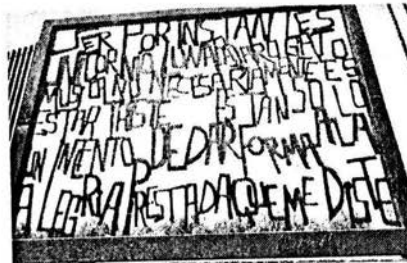 SER POR INSTANTES
UNICORNIO REGALO
NO NECESARIAMENTE ES
ESTAR TRISTE ES TAN SOLO
UN INTENTO DE DAR FORMA A LA
ALEGRIA PRESTADA QUE ME DISTE